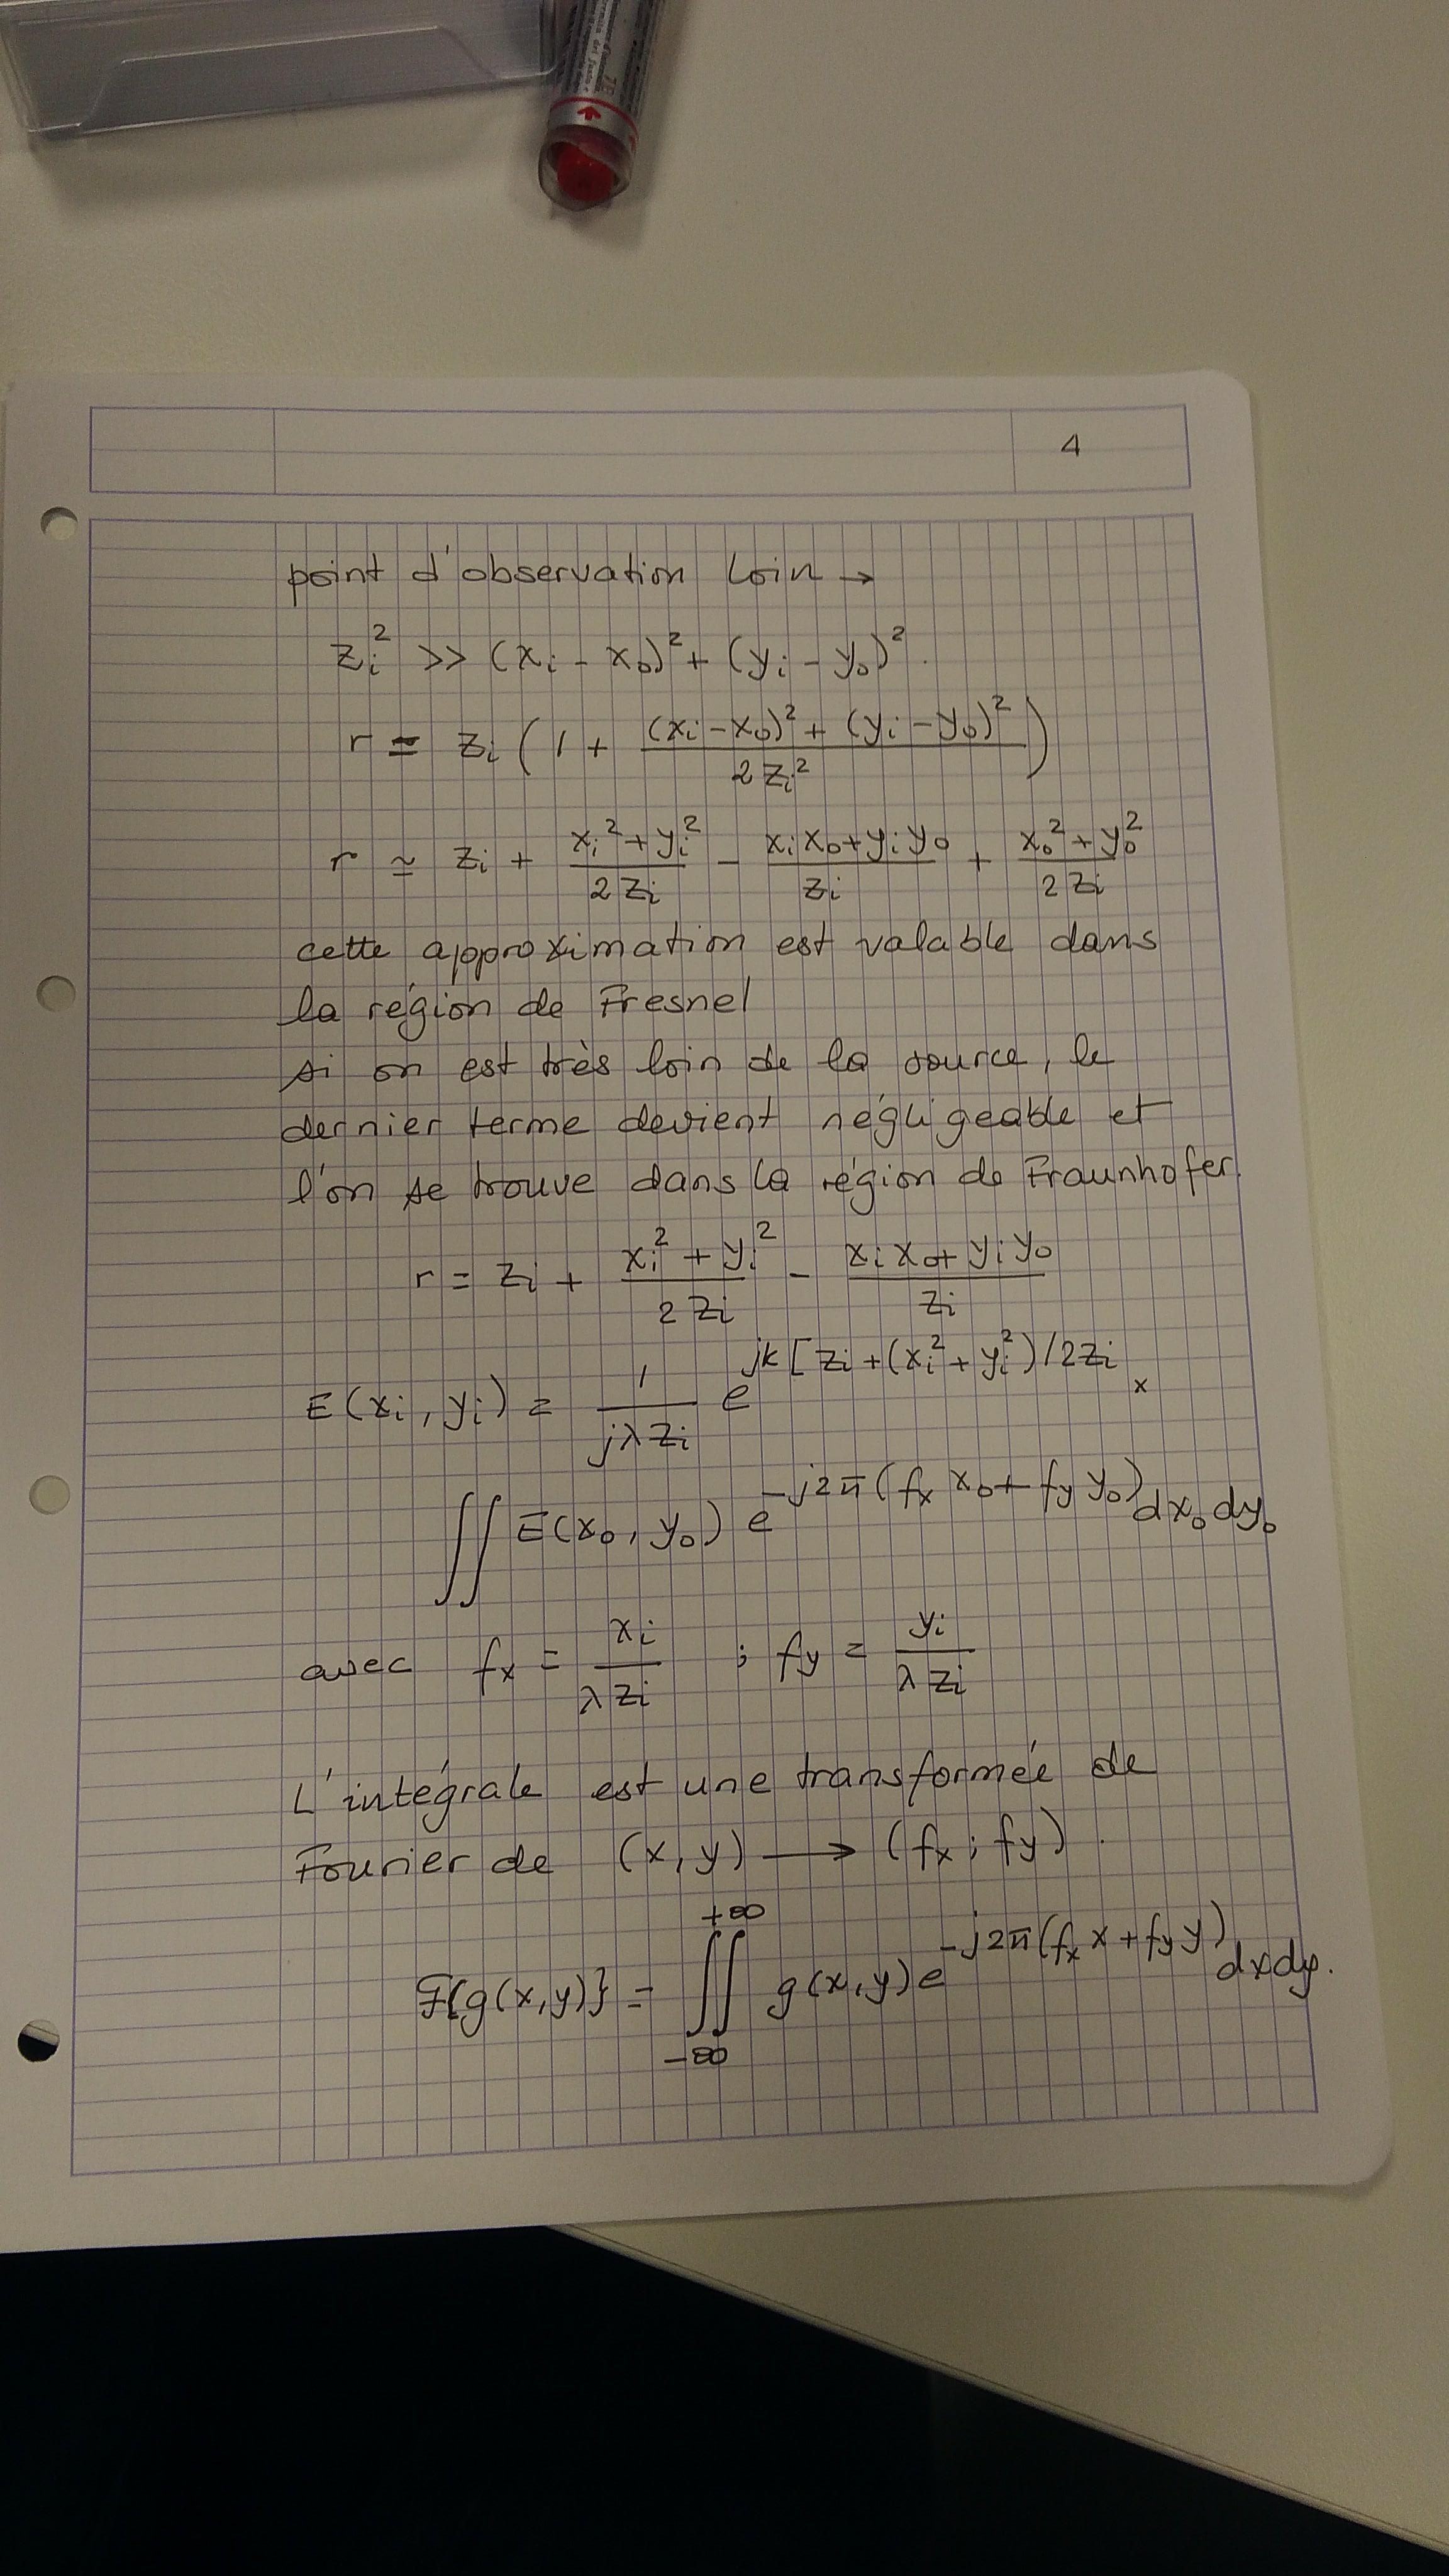 4
point d'observation loin →
zᵢ² >> (xᵢ - x₀)² + (yᵢ - y₀)².
r = zᵢ (1 + ((xᵢ - x₀)² + (yᵢ - y₀)²) / 2zᵢ²)
r ≃ zᵢ + (xᵢ² + yᵢ²) / 2zᵢ - (xᵢx₀ + yᵢy₀) / zᵢ + (x₀² + y₀²) / 2zᵢ
cette approximation est valable dans
la région de Fresnel
si on est très loin de la source, le
dernier terme devient négligeable et
l'on se trouve dans la région de Fraunhofer.
r = zᵢ + (xᵢ² + yᵢ²) / 2zᵢ - (xᵢx₀ + yᵢy₀) / zᵢ
E(xᵢ, yᵢ) = 1 / jλzᵢ e^jk[zᵢ + (xᵢ² + yᵢ²)/2zᵢ ×
∬ E(x₀, y₀) e^-j2π(fₓ x₀ + f_y y₀) dx₀ dy₀
avec fₓ = xᵢ / λzᵢ ; f_y = yᵢ / λzᵢ
L'intégrale est une transformée de
Fourier de (x, y) → (fₓ ; f_y).
F{g(x,y)} = ∬_-∞^+∞ g(x,y) e^-j2π(fₓ x + f_y y) dxdy.